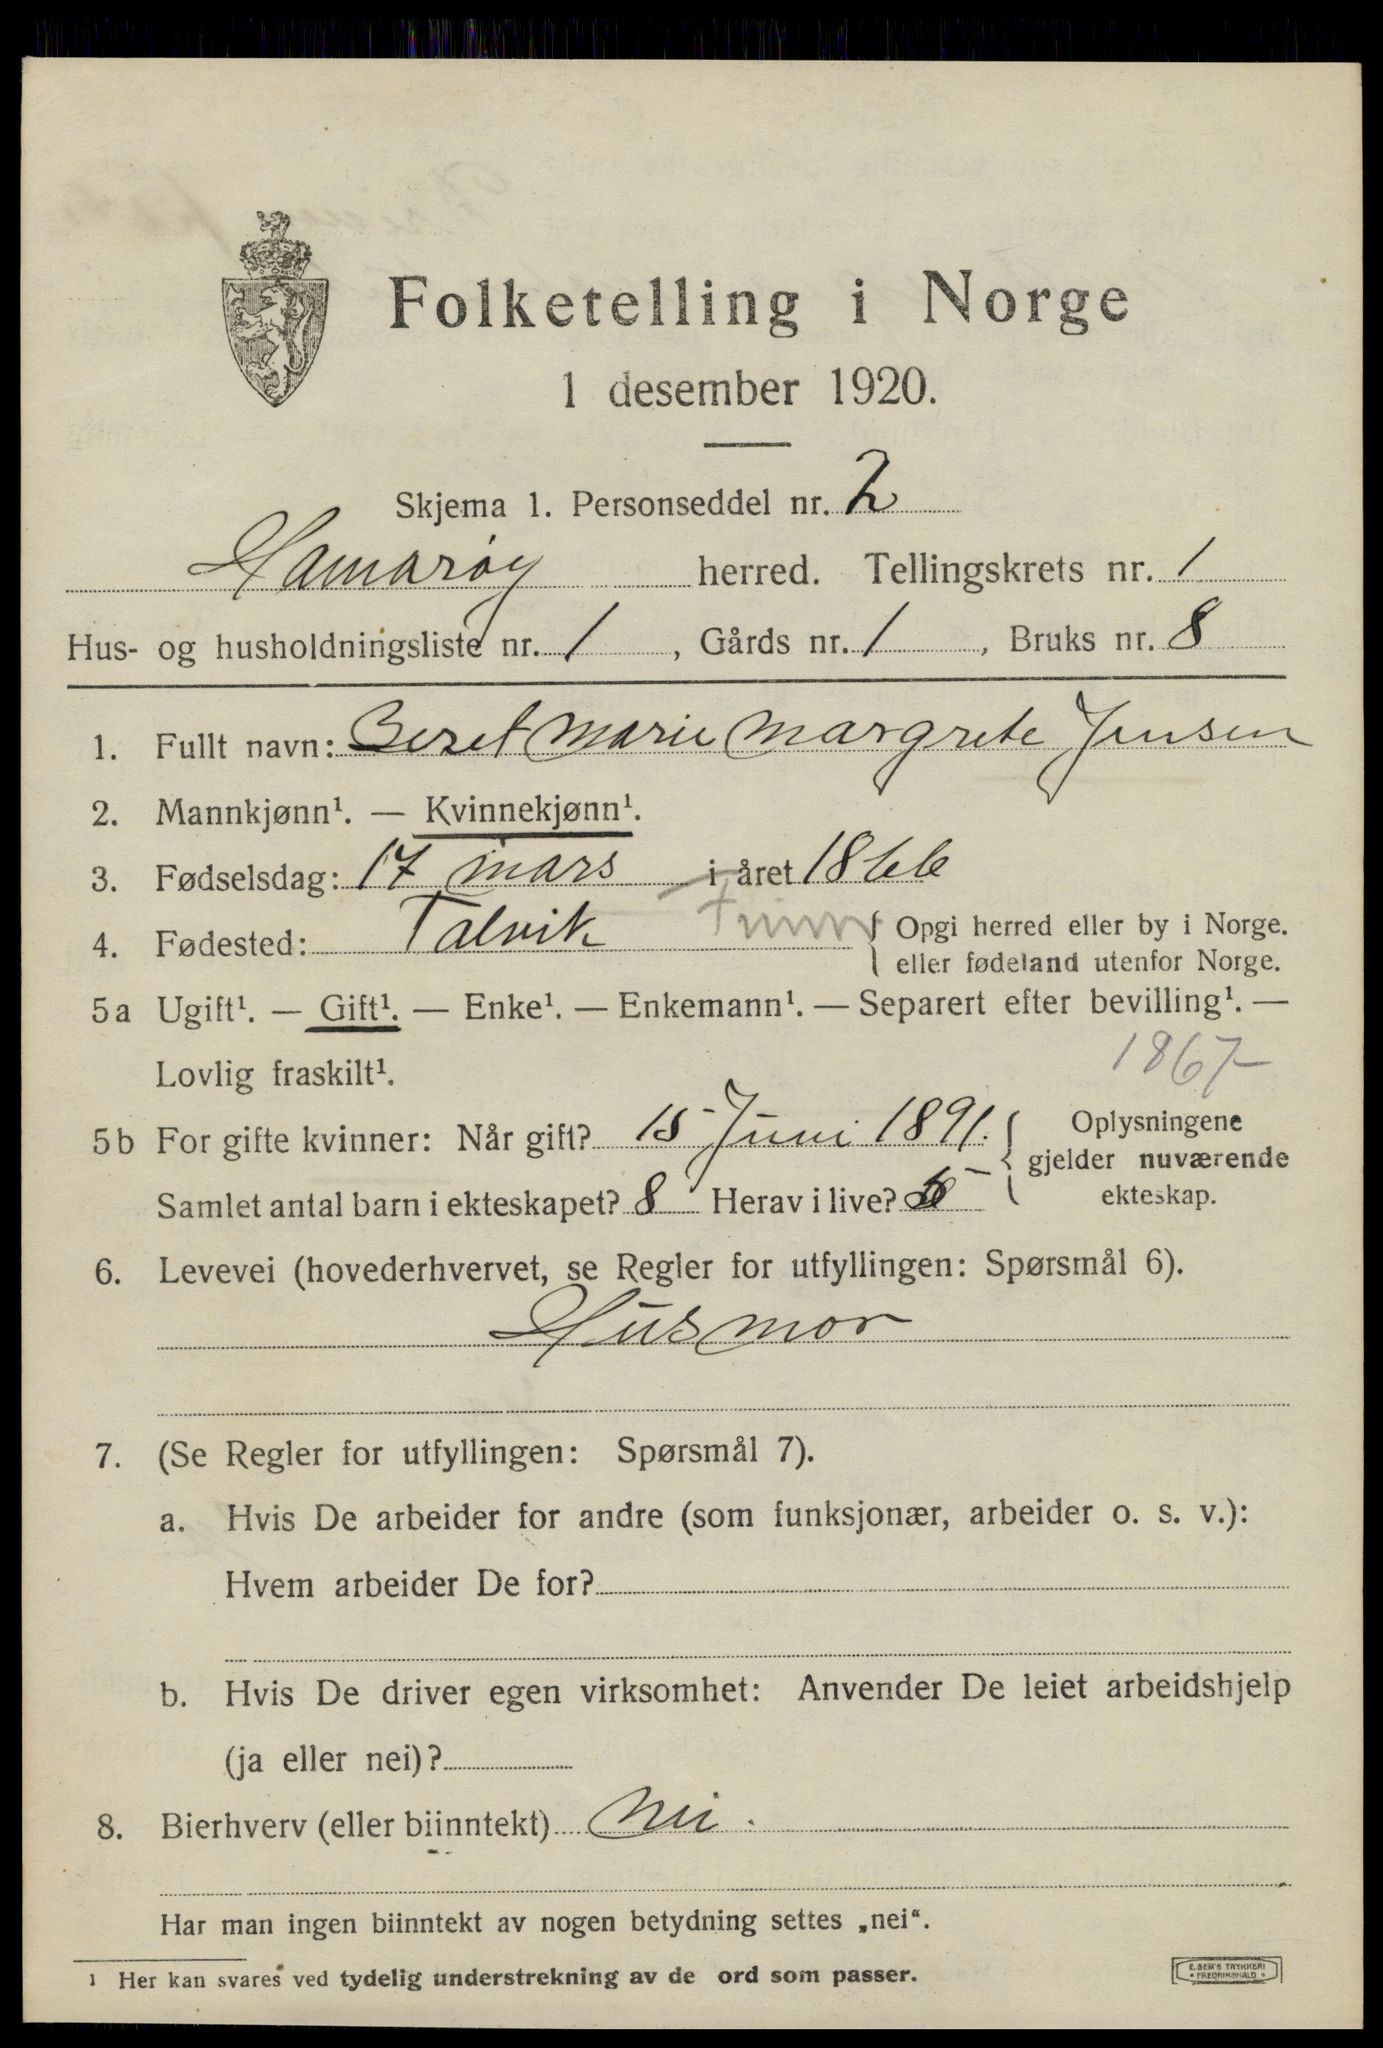 Folketelling i Norge
1 desember 1920.
Skjema 1. Personseddel nr. 2
Hamarøy herred. Tellingskrets nr. 1
Hus- og husholdningsliste nr. 1, Gårds nr. 1, Bruks nr. 8
1. Fullt navn: Beret Marie Margrete Jensen
2. Mannkjønn¹. — Kvinnekjønn¹.
3. Fødselsdag: 17 mars i året 1866
4. Fødested: Talvik { Opgi herred eller by i Norge.
eller fødeland utenfor Norge.
5a Ugift¹. — Gift¹. — Enke¹. — Enkemann¹. — Separert efter bevilling¹. —
Lovlig fraskilt¹. 1867
5b For gifte kvinner: Når gift? 15 Juni 1891. { Oplysningene
gjelder nuværende
Samlet antal barn i ekteskapet? 8 Herav i live?
ekteskap.
6. Levevei (hovederhvervet, se Regler for utfyllingen: Spørsmål 6).
Husmor
7. (Se Regler for utfyllingen: Spørsmål 7).
a. Hvis De arbeider for andre (som funksjonær, arbeider o. s. v.):
Hvem arbeider De for?
b. Hvis De driver egen virksomhet: Anvender De leiet arbeidshjelp
(ja eller nei)?
8. Bierhverv (eller biinntekt) Nei.
Har man ingen biinntekt av nogen betydning settes „nei“.
1 Her kan svares ved tydelig understrekning av de ord som passer.
E. SEM'S TRYKKERI
• FREDRIKSHALD •